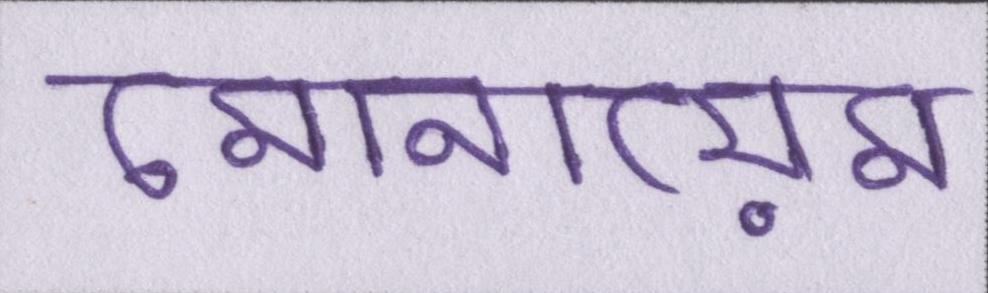 মোনায়েম